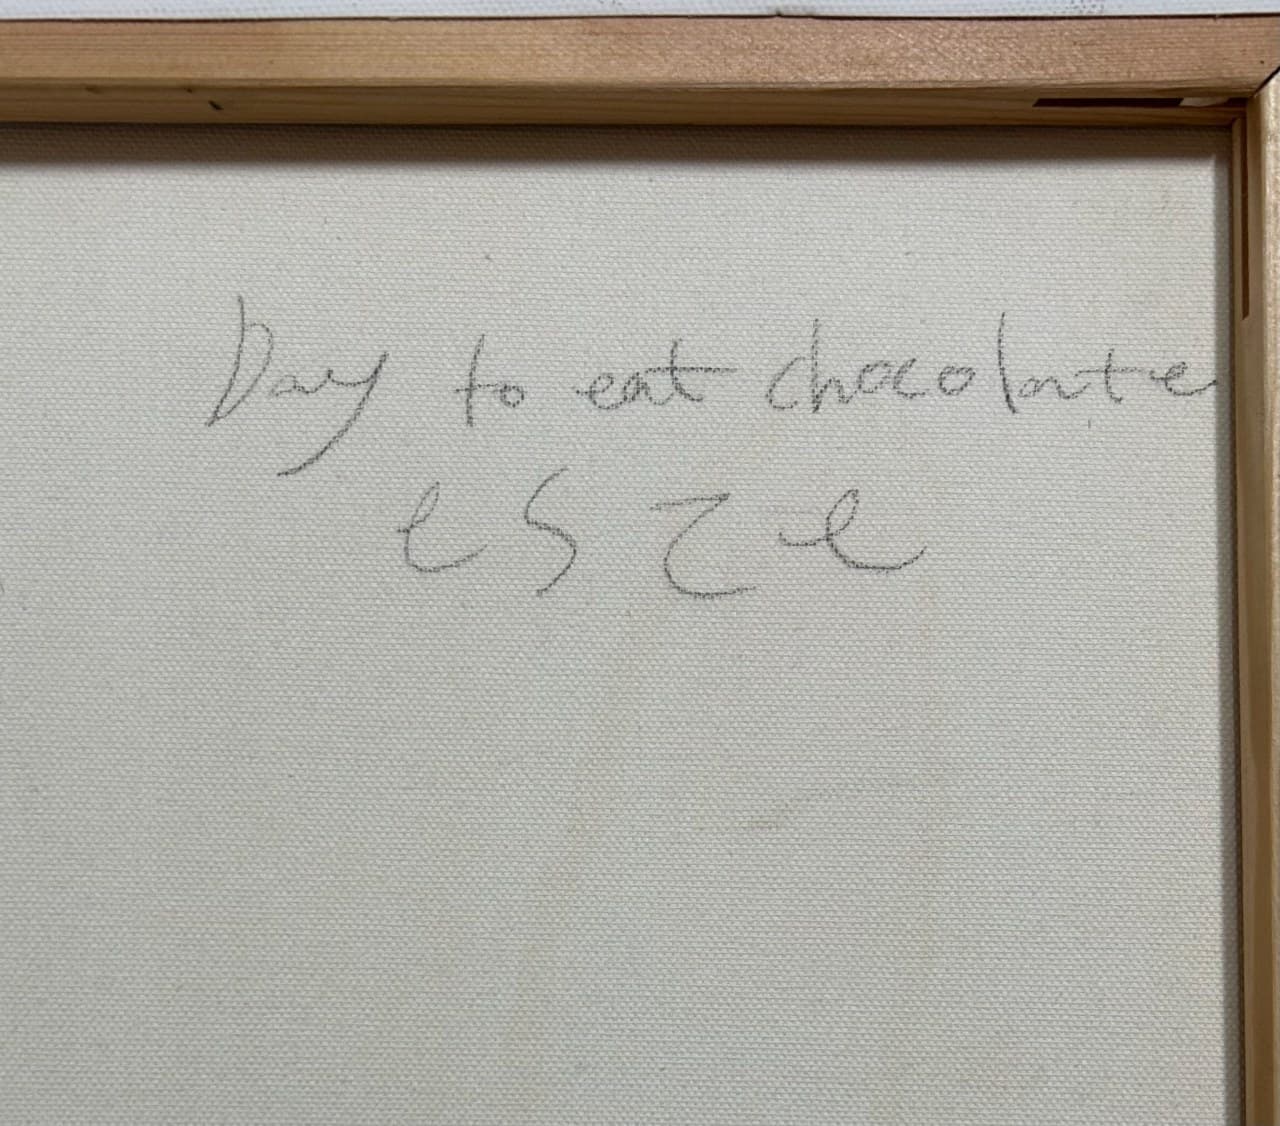 Day to eat chocolate
e s z e